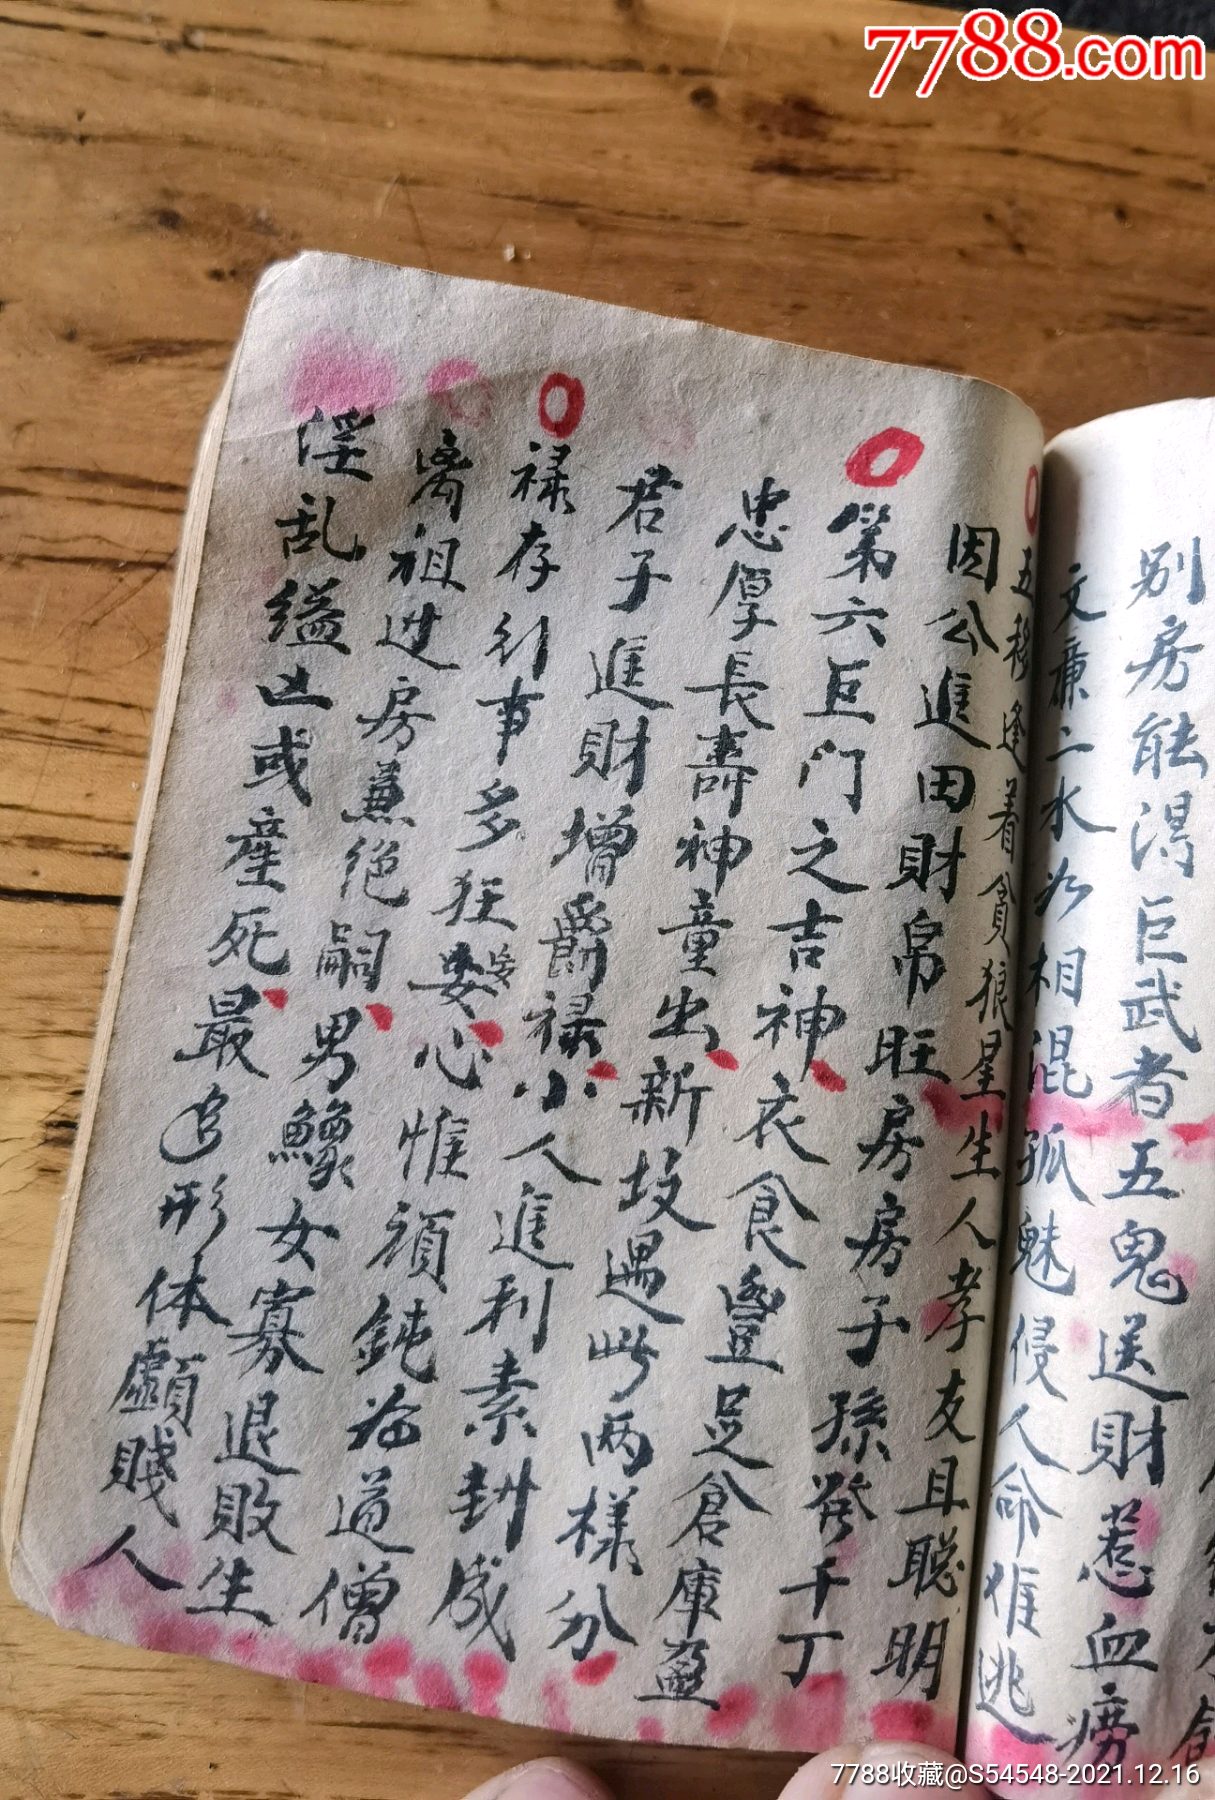 7788.com
别房能淂巨武者五鬼送财惹血痨
文廉二水如相混孤魅侵人命难逃
五移逢着貪狼星生人孝友且聪明
因公進田財帛旺房房子孫發千丁
第六巨门之吉神衣食豐足倉庫盈
忠厚長壽神童出新坟遇此两樣分
君子進財增爵禄小人進利素封成
禄存行事多狂妄心惟頑鈍為道僧
离祖过房兼绝嗣男鰥女寡退敗生
淫乱缢凶或產死最形体賤人
7788收藏@S54548-2021.12.16